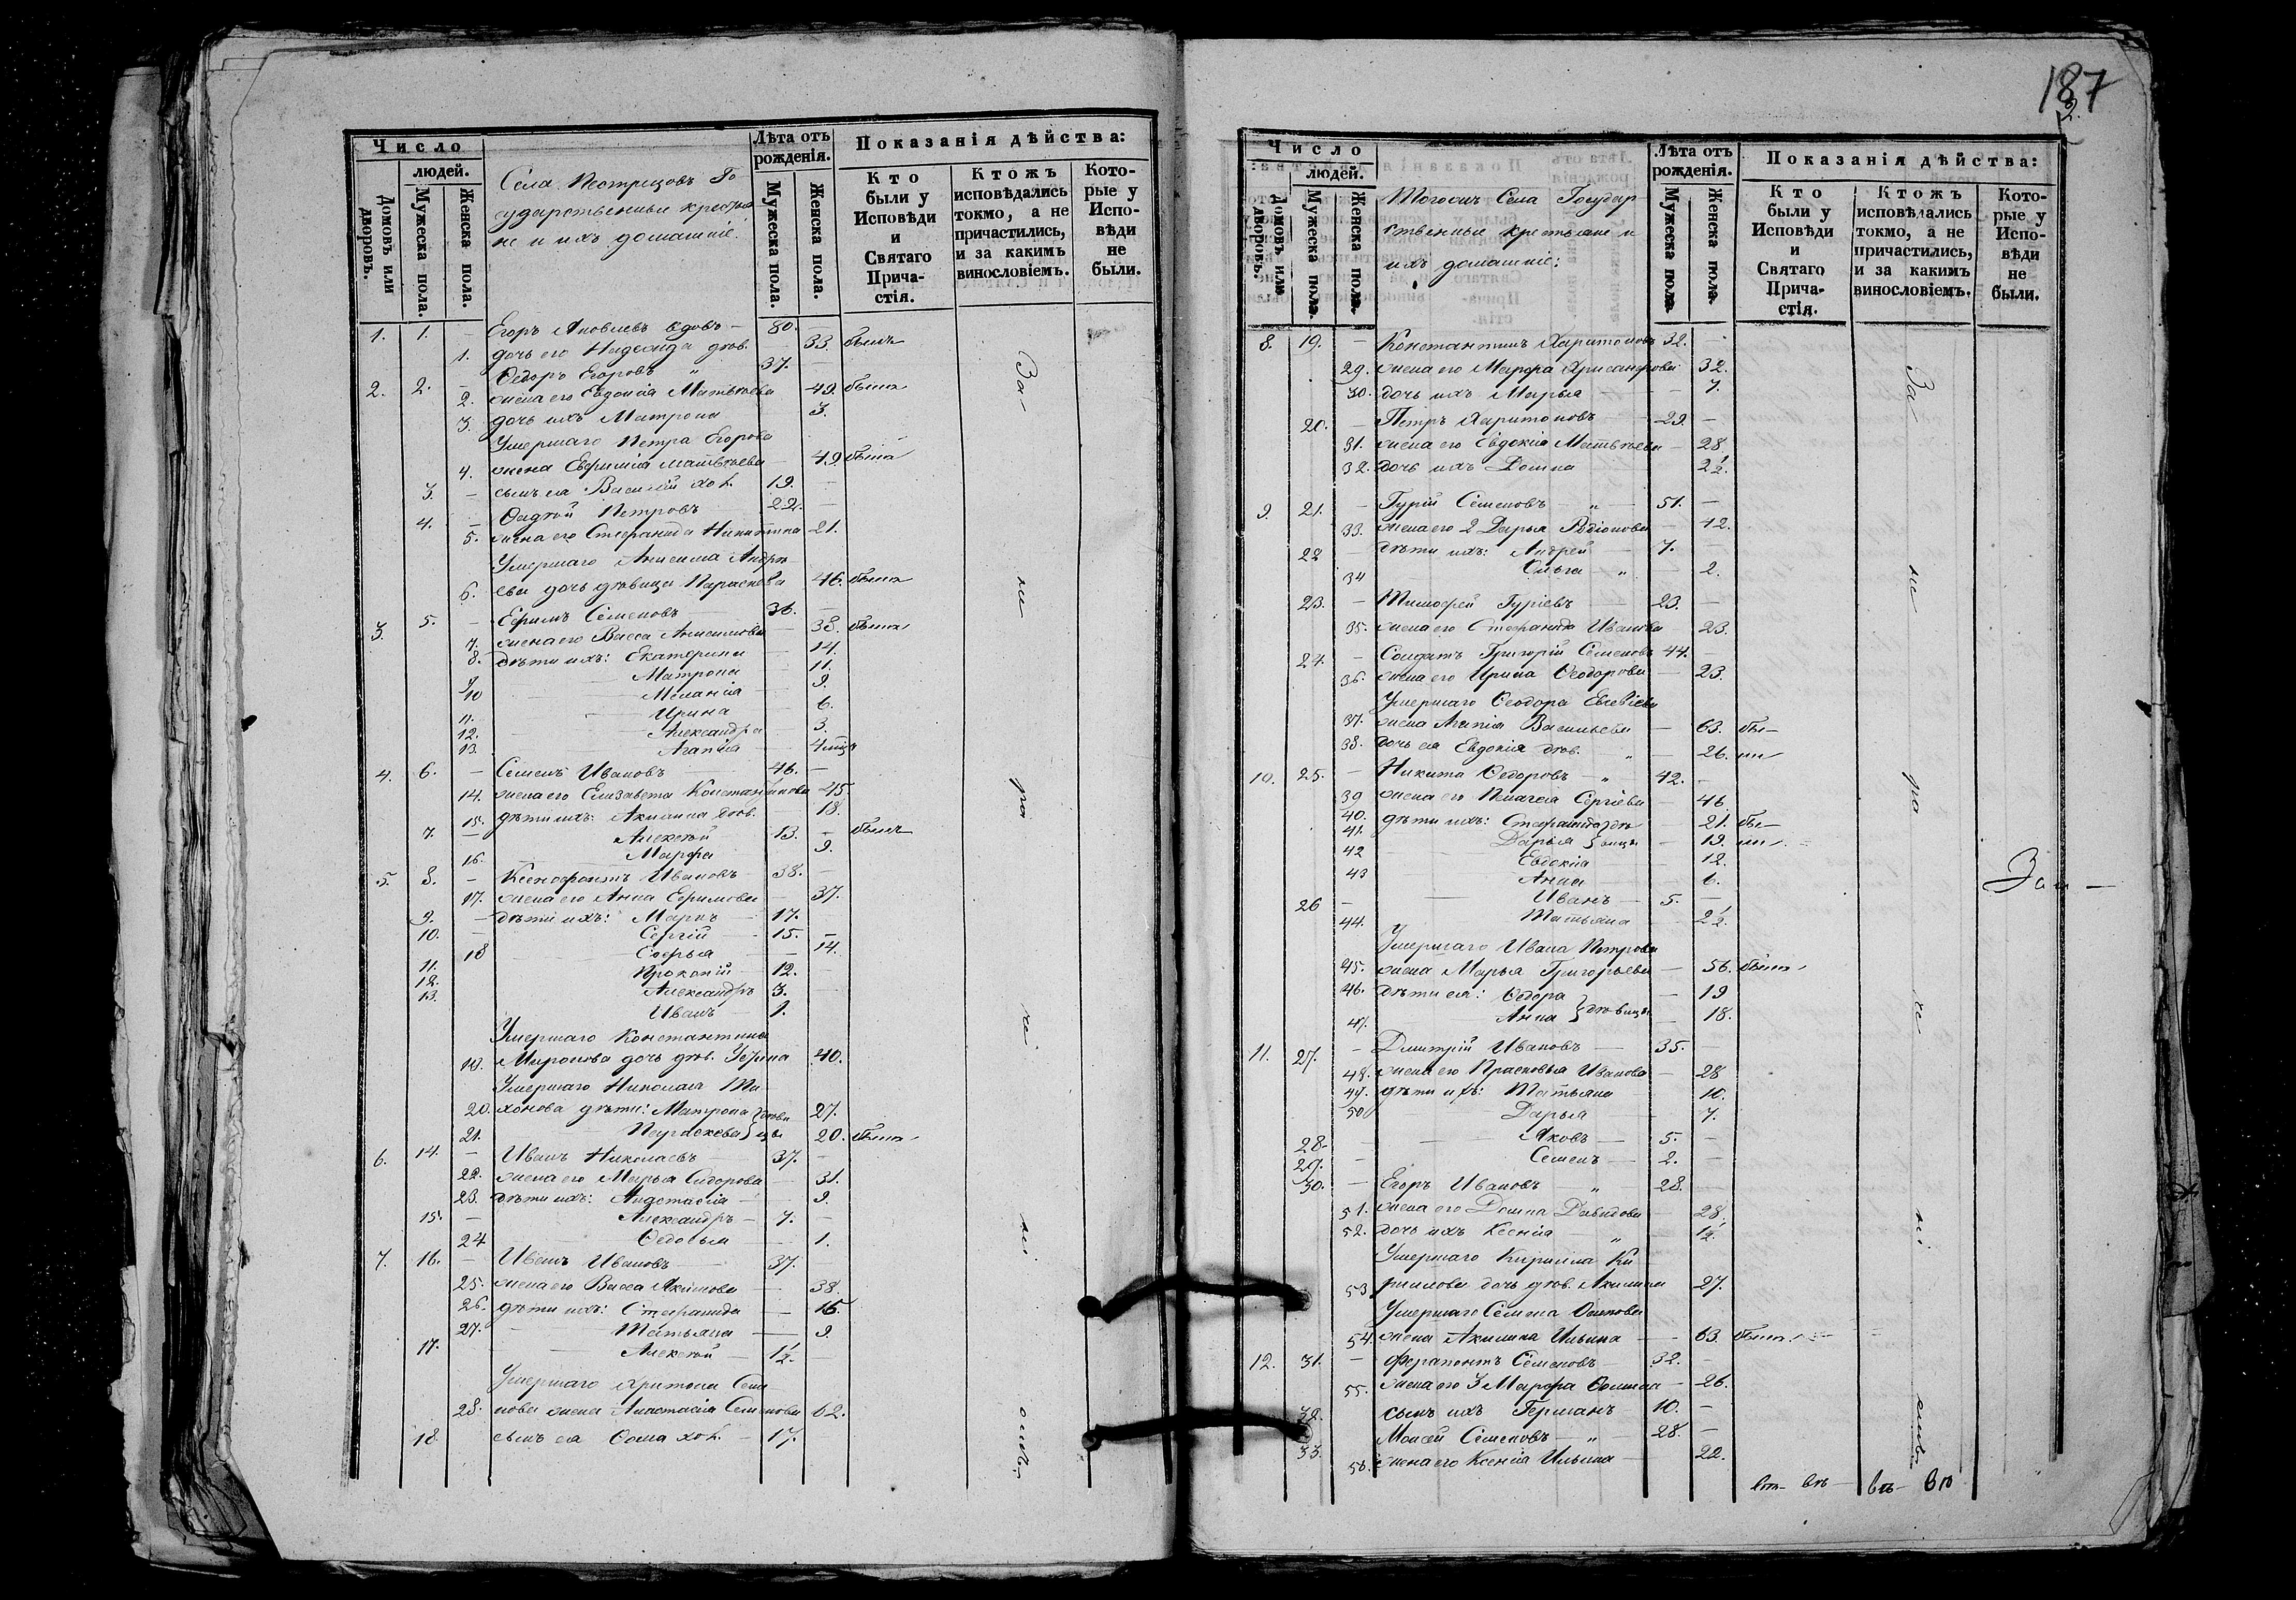 187
2.
Число
людей.
Домовъ или дворовъ.
Мужеска пола.
Женска пола.
Лѣта отъ рожденія.
Мужеска пола.
Женска пола.
Показанія дѣйства:
Кто были у Исповѣди и Святаго Причастія.
Ктожъ исповѣдались токмо, а не причастились, и за какимъ винословіемъ.
Которые у Исповѣди не были.
Села Пестрецовъ Го-
сударственные крестья-
не и ихъ домашніе.
1. 1. – Егоръ Яковлевъ вдовъ – 80.
1. дочь его Надежда дѣв. 33. былъ
2. 2. – Ѳедоръ Егоровъ „ 37.
2. жена его Евдокія Матвѣева 49. была
3. дочь ихъ Матрона 3.
Умершаго Петра Егорова
4. жена Евфимія Матвѣева 49. была
3. – сынъ ея Василій хол. 19. –
4. – Ѳаддей Петровъ 22. –
5. жена его Стефанида Никитина 21.
Умершаго Анисима Андре-
6. ева дочь дѣвица Параскева 46. была
3. 5. – Ефимъ Семеновъ – 36. –
7. жена его Васса Анисимова – 38. была
8. дѣти ихъ: Екатерина – 14.
9. Матрона 11.
10 Меланія 9.
11. Ирина 6.
12. Александра 3.
13. Агапія 4 мѣц
4. 6. – Семенъ Ивановъ – 46. –
14. жена его Елизавета Константинова 45.
15. дѣти ихъ: Акилина дѣв. 18.
7. – Алексѣй 13. – былъ
16. Марфа 9.
5. 8. – Ксенофонтъ Ивановъ 38. –
17. жена его Анна Ефимова – 37.
9. – дѣти ихъ: Маркъ 17.
10. – Сергій 15. –
18 Софья – 14.
11. Прокопій 12. –
12. Александръ 3. –
13. Иванъ 1.
Умершаго Константина
19. Миронова дочь дѣв. 40.
Умершаго Николая Ти-
20. хонова дѣти: Матрона } дѣви 27.
21. Параскева } цы 20. была
6. 14. – Иванъ Николаевъ – 37. –
22. жена его Марья Сидорова – 31.
23. дѣти ихъ: Анастасія – 9.
15. – Александръ – 7. –
24 Ѳедосья – 1.
7. 16. – Иванъ Ивановъ 37. –
25. жена его Васса Акимова – 38.
26. дѣти ихъ: Стефанида – 16
27. – Татьяна – 9.
17. – Алексѣй – 1½. –
Умершаго Харитона Семе-
28. нова жена Анастасія Семенова 62.
18. сынъ ея Ѳома хол. – 17.
За-
не
ра
че
ні
емъ
Число
людей.
Домовъ или дворовъ.
Мужеска пола.
Женска пола.
Лѣта отъ рожденія.
Мужеска пола.
Женска пола.
Показанія дѣйства:
Кто были у Исповѣди и Святаго Причастія.
Ктожъ исповѣдались токмо, а не причастились, и за какимъ винословіемъ.
Которые у Исповѣди не были.
Тогожъ Села Государ-
ственные крестьяне и
ихъ домашніе:
8. 19. – Константинъ Харитоновъ 32. –
29. жена его Марфа Хрисанфова 32.
30. дочь ихъ Марья – 7.
20. – Петръ Харитоновъ – 29. –
31. жена его Евдокія Матвѣева – 28.
32. дочь ихъ Домна 2½.
9. 21. – Гурій Семеновъ – „ – 51. –
33. жена его 2 Дарья Родіонова – 42.
22 дѣти ихъ: Андрей – 7. –
34 Ольга – „ – 2.
23. – Тимофей Гуріевъ – 23. –
35. жена его Стефанида Иванова 23.
24. – Солдатъ Григорій Семеновъ 44. –
36. жена его Ирина Ѳеодорова – 23.
Умершаго Ѳеодора
37. жена Агапія Васильева – 63. бы-
38. дочь ея Евдокія дѣв. „ – 26. ли
10. 25. – Никита Ѳедоровъ – „ 42. –
39 жена его Пелагея Сергіева 46
40. дѣти ихъ: Стефанида } дѣ 21. бы-
41. Дарья } вицы 19. ли
42 Евдокія – 12.
43 Анна 6.
26 – Иванъ – 5. –
44. Татьяна 2½.
Умершаго Ивана Петрова
45. жена Марья Григорьева – 56. была
46. дѣти ея: Ѳедора } – 19
47. Анна } дѣвицы – 18.
11. 27. – Дмитрій Ивановъ – 35. –
48. жена его Прасковья Иванова – 28
49. дѣти ихъ: Татьяна – 10.
50 Дарья – 7.
28. – Яковъ – 5. –
29. – Семенъ – 2. –
30. – Егоръ Ивановъ „ 28. –
51. жена его Домна Давыдова – 28.
52. дочь ихъ Ксенія – „ 1½.
Умершаго Кирилла Ки-
53 рилова дочь дѣв. Акилина 27.
Умершаго Семена Осипова
54. жена Акилина Ильина – 63. была
12. 31. – Ферапонтъ Семеновъ – 32. –
55. жена его 3 Марфа Ѳомина – 26.
32. сынъ ихъ Германъ – 10. –
33. Моисей Семеновъ – „ – 28. –
56. жена его Ксенія Ильина – 22.
За-
не
ра
че
ні
емъ